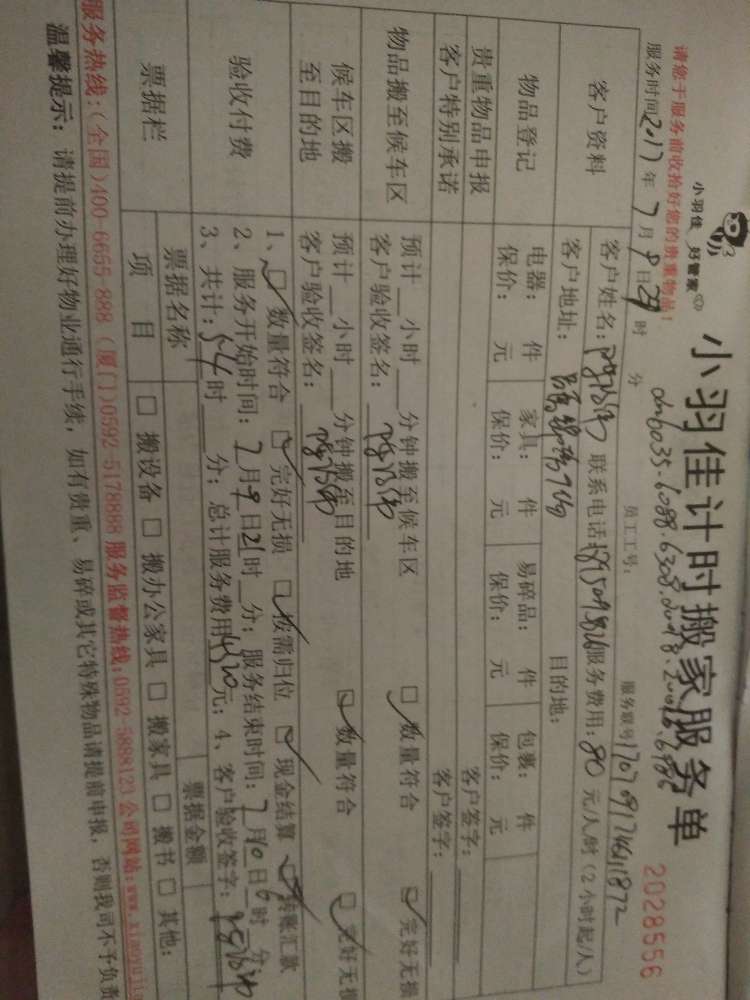 小羽佳 好管家
小羽佳计时搬家服务单
2028556
请您于服务前收拾好您的贵重物品！
员工工号：
服务联号
服务时间2017年7月9日 时 分
客户资料
客户姓名： 联系电话： 服务费用：80元/人/时（2小时起/人）
客户地址： 目的地：
物品登记
电器： 件 家具： 件 易碎品： 件 包裹： 件
保价： 元 保价： 元 保价： 元 保价： 元
贵重物品申报 客户签字：
客户特别承诺 客户签字：
物品搬至候车区
预计 小时 分钟搬至候车区 □数量符合 □完好无损
客户验收签名：
候车区搬至目的地
预计 小时 分钟搬至目的地 □数量符合 □完好无损
客户验收签名：
验收付费
1、□数量符合 □完好无损 □按需归位 □现金结算 □转账汇款
2、服务开始时间：7月9日21时 分；服务结束时间：7月10日6时 分
3、共计：54时 分；总计服务费用4320元；4、客户验收签字：
票据栏
票据名称 票据金额
项目 □搬设备 □搬办公家具 □搬家具 □搬书 □其他：
服务热线：（全国）400-6655-888 （厦门）0592-5178888 服务监督热线：0592-5888123 公司网站：www.xiaoyujia
温馨提示：请提前办理好物业通行手续，如有贵重、易碎或其它特殊物品请提前申报，否则我司不予负责